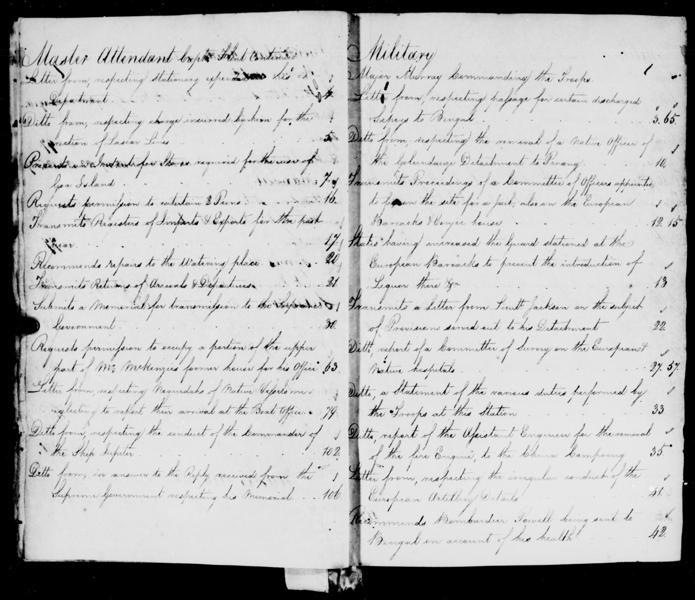 Master Attendant Capt
Letter from, respecting stationery
Department 4
Ditto from, respecting charge incurred by him for the
erection of Lascar Lines 5
for Stores required for the use of
Goa Island 7
Requests permission to entertain 3 Peons 16
Transmits Registers of Imports & Exports for the past
year 17
Recommends repairs to the Watering place 20
Transmits Returns of Arrivals & Departures 21
Submits a Memorial for transmission to the Supreme
Government 30
Requests permission to occupy a portion of the upper
part of Mr McKenzies former house for his Office 63
Letter from, respecting Nacodahs of Native Vessels
neglecting to report their arrival at the Boat Office 79
Ditto from, respecting the conduct of the Commander of
the Ship Jupiter 102
Ditto from, in answer to the Reply received from the
Supreme Government respecting his Memorial 106
Military
Major Murray Commanding the Troops
Letter from, respecting passage for certain discharged
Sepoys to Bengal 3.65.
Ditto from, respecting the removal of a Native Officer of
the Golundauze Detachment to Penang 10
Transmits Proceedings of a Committee of Officers appointed
to fix on the site for a fort, also on the European
Barracks & Congee house 12 15
States having increased the Guard stationed at the
European Barracks to prevent the introduction of
Liquor there &c 13
Transmits a letter from Lieutt Jackson on the subject
of Provisions served out to his Detachment 22
Ditto, report of a Committee of Survey on the European &
Native hospitals 27.57
Ditto, a Statement of the various duties performed by
the Troops at this Station 33
Ditto, report of the Assistant Engineer for the removal
of the fire Engine, to the China Campong 35
Letter from, respecting the irregular conduct of the
European Artillery Details 41
Recommends Bombardier Powell being sent to
Bengal on account of his health 42